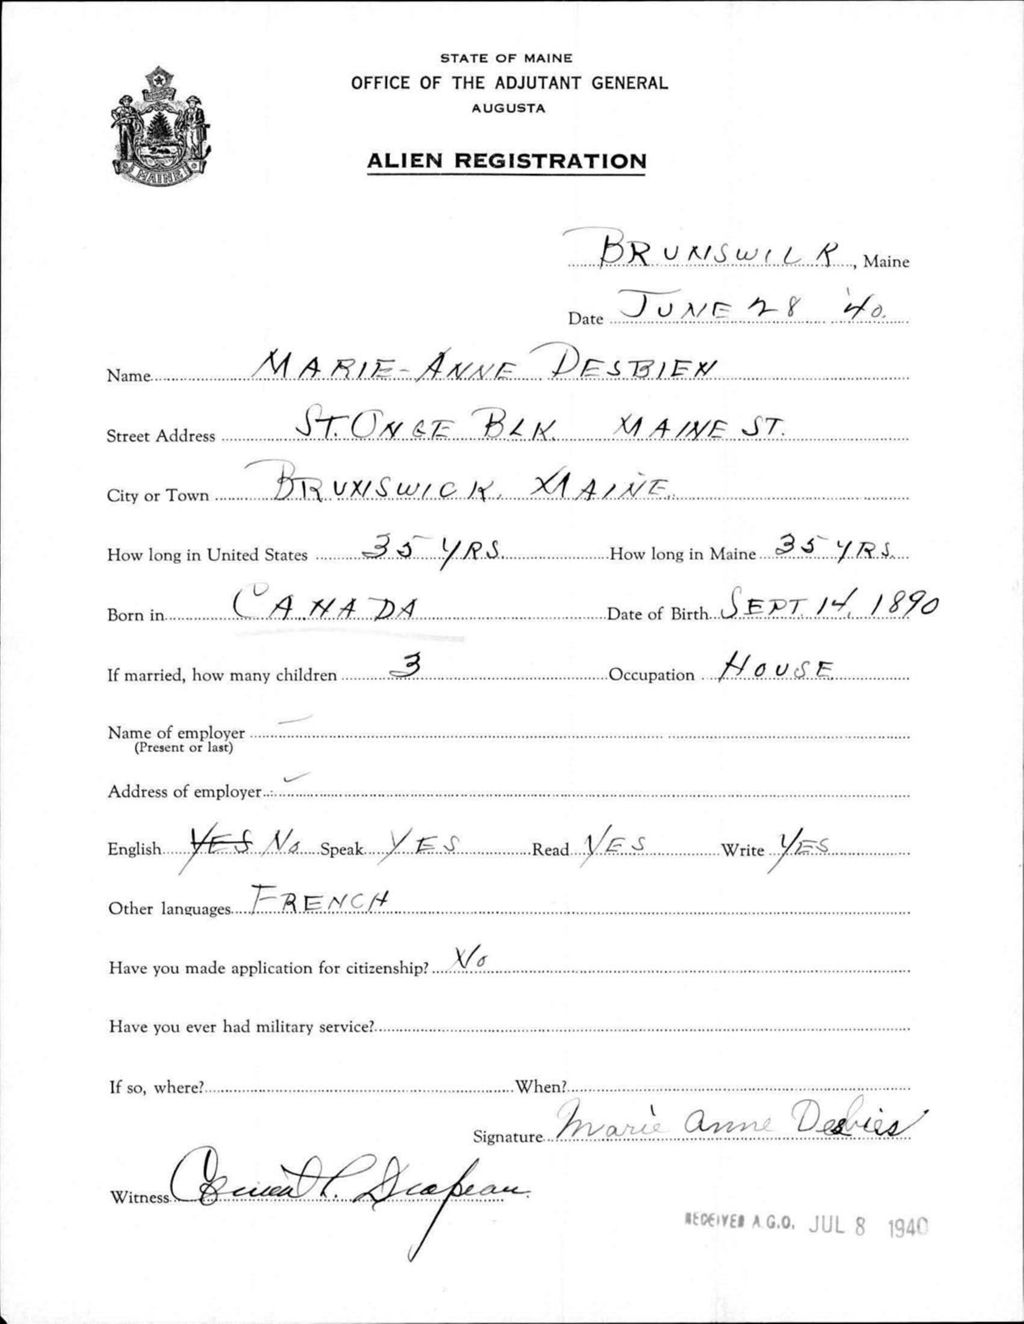 STATE OF MAINE
OFFICE OF THE ADJUTANT GENERAL
AUGUSTA
ALIEN REGISTRATION
MAINE
BRUNSWICK, Maine
Date JUNE 28 '40.
Name MARIE-ANNE DESBIEN
Street Address ST. ONGE BLK. MAINE ST.
City or Town BRUNSWICK, MAINE.
How long in United States 35 YRS. How long in Maine 35 YRS.
Born in CANADA Date of Birth SEPT. 14, 1890
If married, how many children 3 Occupation HOUSE
Name of employer —
(Present or last)
Address of employer
English YES No Speak YES Read YES Write YES
Other languages FRENCH
Have you made application for citizenship? No
Have you ever had military service?
If so, where? When?
Signature Marie Anne Desbies
Witness L. Drapeau.
RECEIVED A.G.O. JUL 8 1940